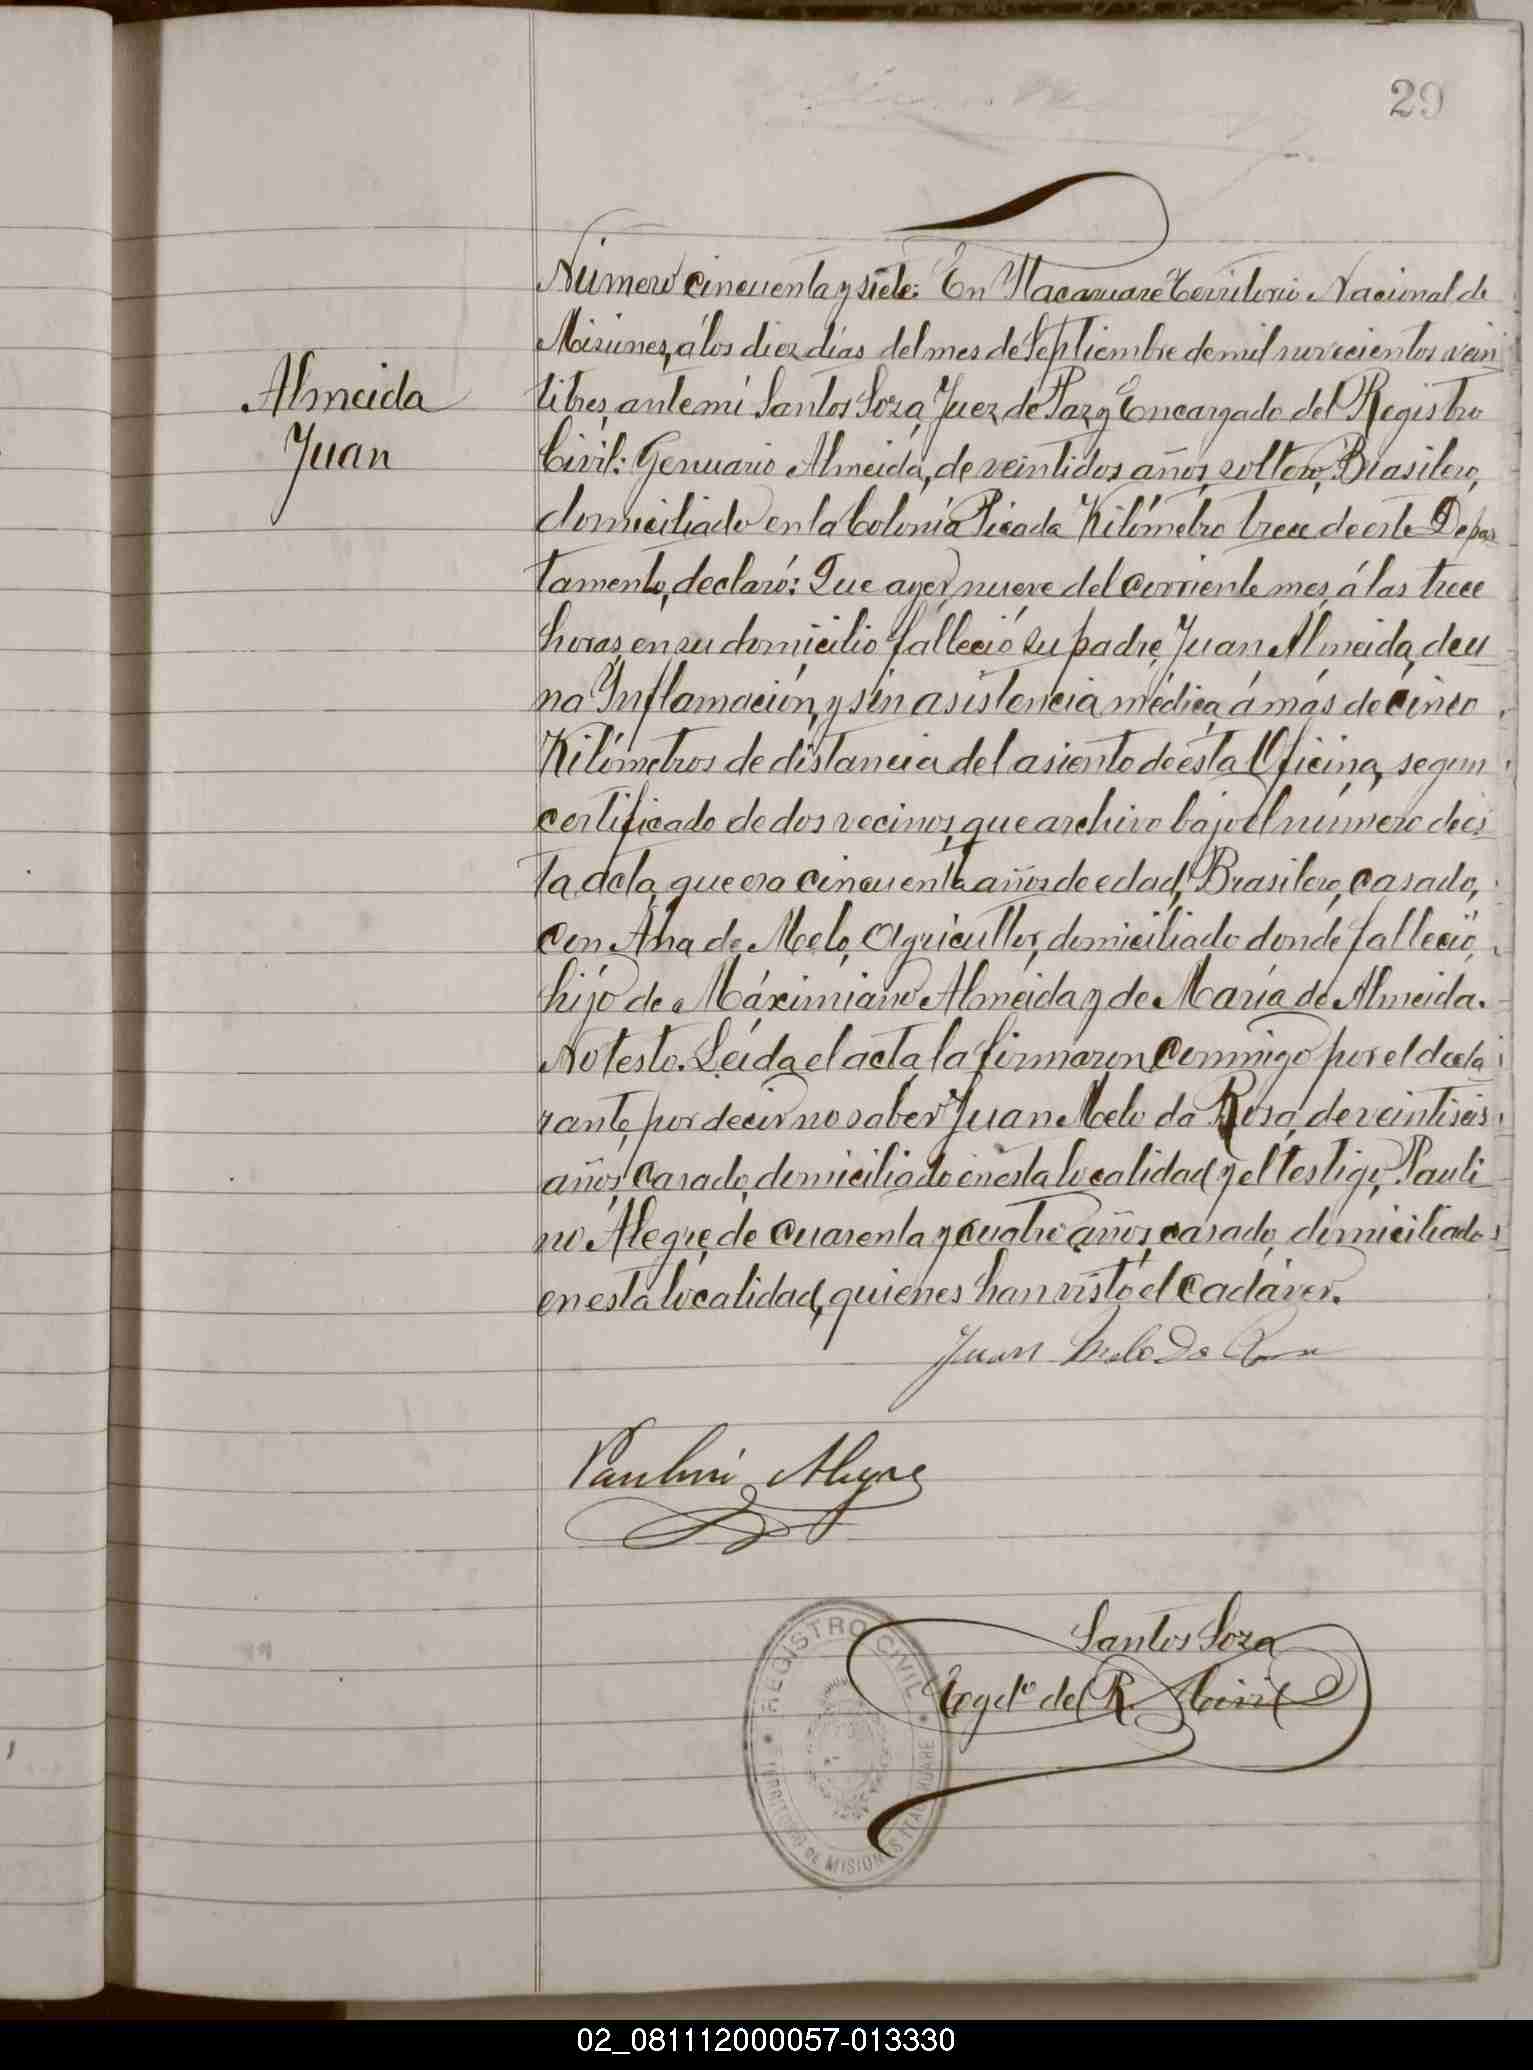 29
Número cincuenta y siete: En Itacaruaré Territorio Nacional de
Misiones, á los diez días del mes de Septiembre de mil novecientos vein
titrés, ante mí Santos Soza, Juez de Paz y Encargado del Registro
Civil: Genuario Almeida, de veintidos años, soltero, Brasilero,
domiciliado en la Colonia Picada Kilómetro trece de este Depar
tamento, declaró: Que ayer, nueve del corriente mes, á las trece
horas, en su domicilio falleció su padre, Juan Almeida, de u
na Ynflamación, y sin asistencia médica, á más de cinco
Kilómetros de distancia del asiento de ésta Oficina, segun
certificado de dos vecinos, que archivo bajo el número de es
ta acta, que era cincuenta años de edad, Brasilero, casado,
con Ana de Melo, Agricultor, domiciliado donde falleció,
hijo de Máximiano Almeida y de María de Almeida.
No testo. Leída el acta, la firmaron conmigo por el decla
rante, por decir no saber Juan Melo da Rosa, de veintiseis
años, casado, domiciliado en esta localidad, y el testigo, Pauli
no Alegre, de cuarenta y cuatro años, casado, domiciliado
en esta localidad, quienes han visto el cadáver.
Almeida
Juan
Juan Melo Da Rosa
Paulino Alegre
Santos Soza
Engdo del R. Civil
REGISTRO CIVIL
TERRITORIO DE MISIONES ITACARUARE
02_081112000057-013330